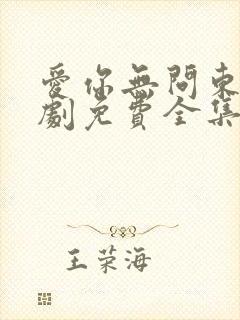 愛你無問東
劇免費全集
王荣海